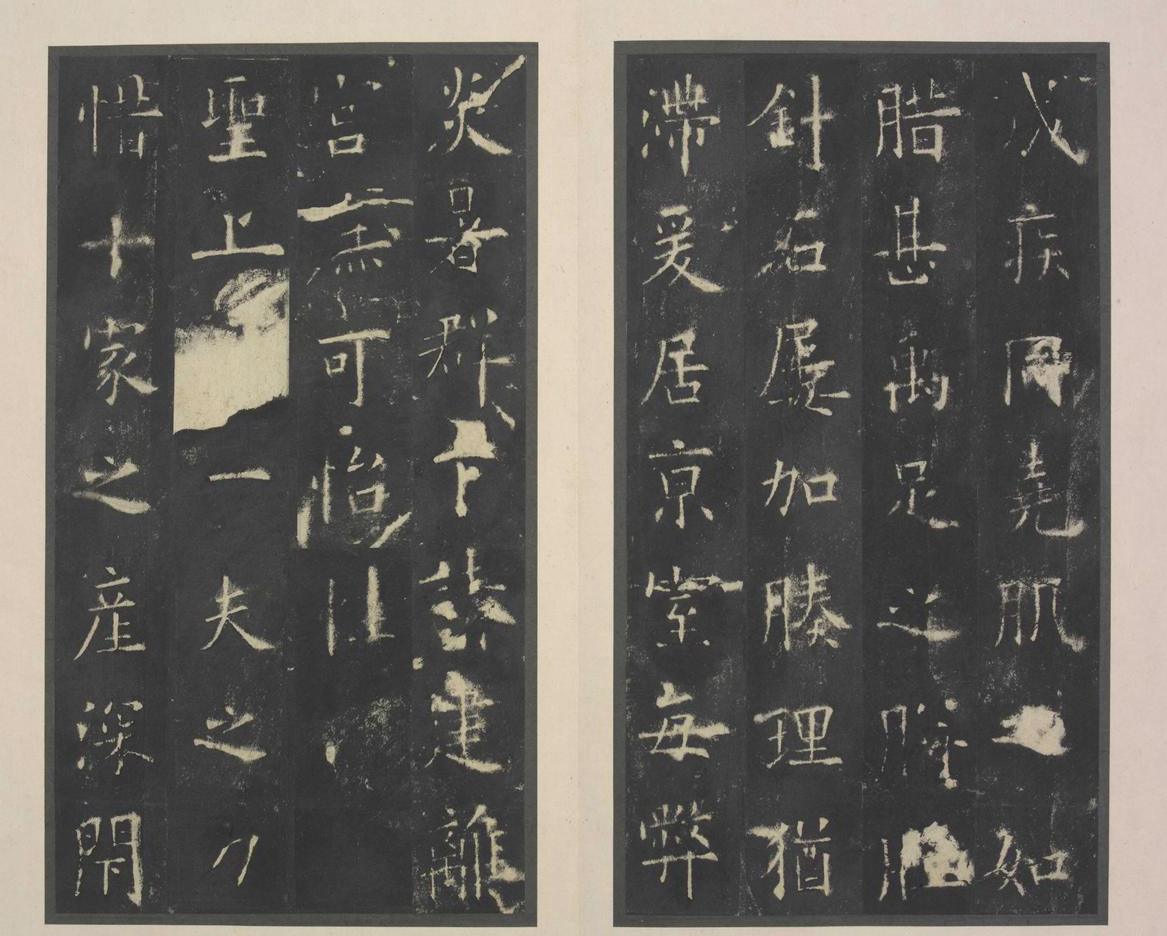 成疾同堯肌如
腊甚禹足之胼胝
針石屢加腠理猶
滯爰居京室每弊
炎暑群下請建離
宮庶可怡性
聖上一夫之力
惜十家之產深閇